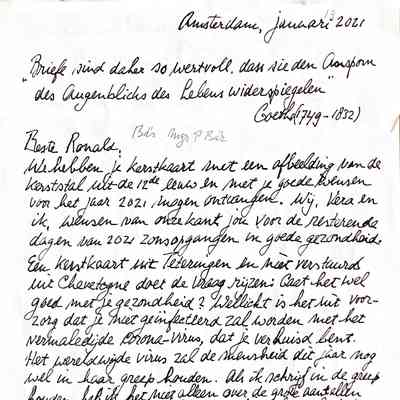 Amsterdam, januari 13 2021
„Briefe sind daher so wertvoll, dass sie den Ansporn
des Augenblicks des Lebens widerspiegelen"
Goethe (1749-1832)
Beste Ronald,
We hebben je kerstkaart met een afbeelding van de
kerststal uit de 12de eeuw en met je goede wensen
voor het jaar 2021 mogen ontvangen. Wij, Vera en
ik, wensen van onze kant jou voor de resterende
dagen van 2021 zonsopgangen in goede gezondheid.
Een kerstkaart uit Teteringen en niet verstuurd
uit Chevetogne doet de vraag rijzen: Gaat het wel
goed met je gezondheid? Wellicht is het uit voor-
zorg dat je niet geïnfecteerd zal worden met het
vermaledijde corona-virus, dat je verhuisd bent.
Het wereldwijde virus zal de mensheid dit jaar nog
wel in haar greep houden. Als ik schrijf in de greep
houden heb ik het niet alleen over de grote aantallen